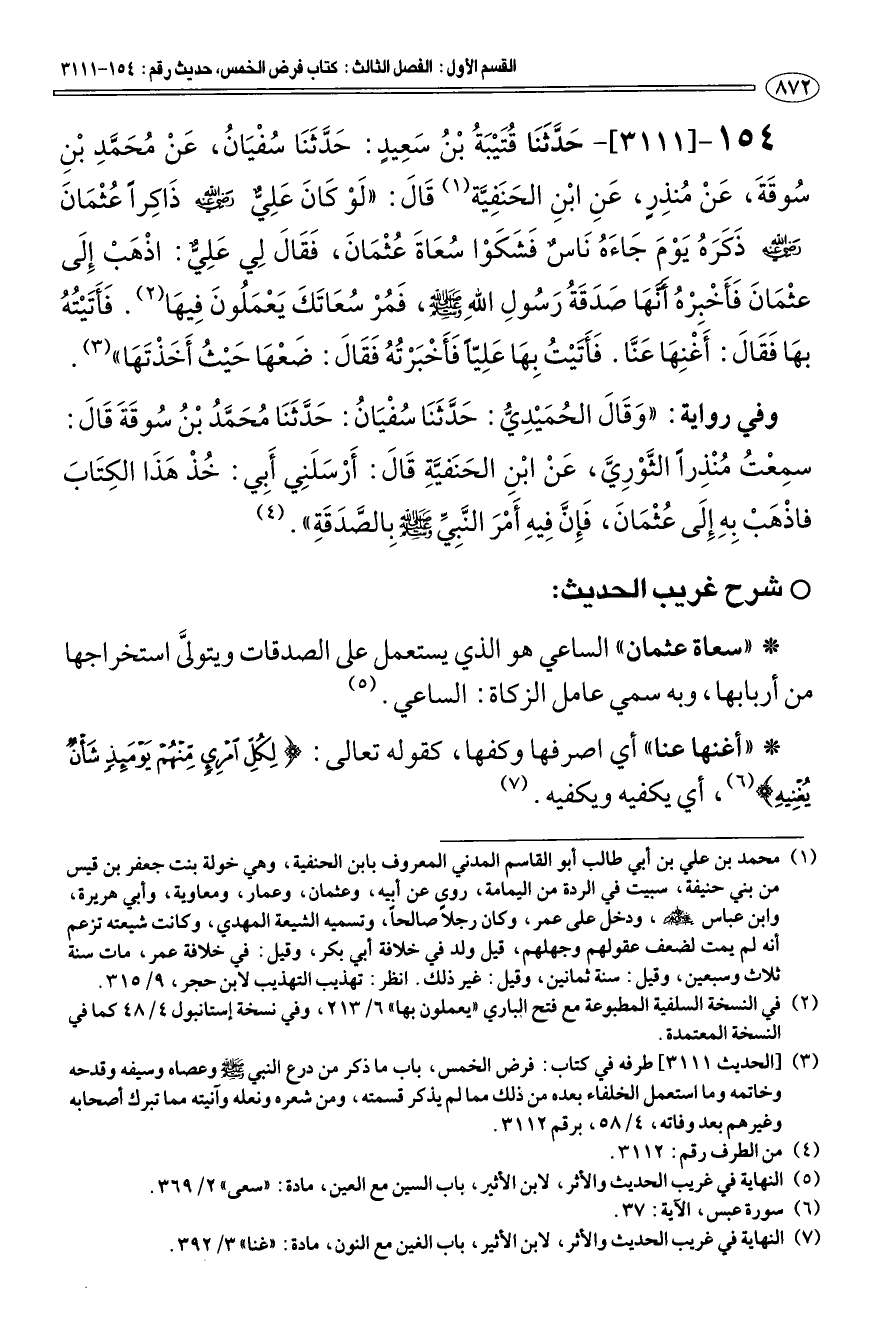 القسم الأول: الفصل الثالث: كتاب فرض الخمس، حديث رقم: ١٥٤-٣١١١
٨٧٢
١٥٤-[٣١١١]- حَدَّثَنَا قُتَيْبَةُ بْنُ سَعِيدٍ: حَدَّثَنَا سُفْيَانُ، عَنْ مُحَمَّدِ بْنِ
سُوقَةَ، عَنْ مُنْذِرٍ، عَنِ ابْنِ الحَنَفِيَّة(١) قَالَ: «لَوْ كَانَ عَلِيٌّ رضي الله عنه ذَاكِراً عُثْمَانَ
رضي الله عنه ذَكَرَهُ يَوْمَ جَاءَهُ نَاسٌ فَشَكَوْا سُعَاةَ عُثْمَانَ، فَقَالَ لِي عَلِيٌّ: اذْهَبْ إِلَى
عثْمَانَ فَأَخْبِرْهُ أَنَّهَا صَدَقَةُ رَسُولِ اللهِ ﷺ، فَمُرْ سُعَاتَكَ يَعْمَلُونَ فِيهَا(٢). فَأَتَيْتُهُ
بِهَا فَقَالَ: أَغْنِهَا عَنَّا. فَأَتَيْتُ بِهَا عَلِيّاً فَأَخْبَرْتُهُ فَقَالَ: ضَعْهَا حَيْثُ أَخَذْتَهَا»(٣).
وفي رواية: «وَقَالَ الحُمَيْدِيُّ: حَدَّثَنَا سُفْيَانُ: حَدَّثَنَا مُحَمَّدُ بْنُ سُوقَةَ قَالَ:
سمِعْتُ مُنْذِراً الثَّوْرِيَّ، عَنْ ابْنِ الحَنَفِيَّةِ قَالَ: أَرْسَلَنِي أَبِي: خُذْ هَذَا الكِتَابَ
فاذْهَبْ بِهِ إِلَى عُثْمَانَ، فَإِنَّ فِيهِ أَمْرَ النَّبِيِّ ﷺ بِالصَّدَقَةِ».(٤)
○ شرح غريب الحديث:
* «سعاة عثمان» الساعي هو الذي يستعمل على الصدقات ويتولىَّ استخراجها
من أربابها، وبه سمي عامل الزكاة: الساعي.(٥)
* «أغنها عنا» أي اصرفها وكفها، كقوله تعالى: ﴿لِكُلِّ ٱمْرِيٍٕ مِّنْهُمْ يَوْمَئِذٍ شَأْنٌ
يُغْنِيهِ﴾(٦)، أي يكفيه ويكفيه.(٧)
(١) محمد بن علي بن أبي طالب أبو القاسم المدني المعروف بابن الحنفية، وهي خولة بنت جعفر بن قيس
من بني حنيفة، سبيت في الردة من اليمامة، روى عن أبيه، وعثمان، وعمار، ومعاوية، وأبي هريرة،
وابن عباس رضي الله عنهم، ودخل على عمر، وكان رجلاً صالحاً، وتسميه الشيعة المهدي، وكانت شيعته تزعم
أنه لم يمت لضعف عقولهم وجهلهم، قيل ولد في خلافة أبي بكر، وقيل: في خلافة عمر، مات سنة
ثلاث وسبعين، وقيل: سنة ثمانين، وقيل: غير ذلك. انظر: تهذيب التهذيب لابن حجر، ٩/ ٣١٥.
(٢) في النسخة السلفية المطبوعة مع فتح الباري «يعملون بها» ٦/ ٢١٣، وفي نسخة إستانبول ٤/ ٤٨ كما في
النسخة المعتمدة.
(٣) [الحديث ٣١١١] طرفه في كتاب: فرض الخمس، باب ما ذكر من درع النبي ﷺ وعصاه وسيفه وقدحه
وخاتمه وما استعمل الخلفاء بعده من ذلك مما لم يذكر قسمته، ومن شعره ونعله وآنيته مما تبرك أصحابه
وغيرهم بعد وفاته، ٤/ ٥٨، برقم ٣١١٢.
(٤) من الطرف رقم: ٣١١٢.
(٥) النهاية في غريب الحديث والأثر، لابن الأثير، باب السين مع العين، مادة: «سعى» ٢/ ٣٦٩.
(٦) سورة عبس، الآية: ٣٧.
(٧) النهاية في غريب الحديث والأثر، لابن الأثير، باب الغين مع النون، مادة: «غنا» ٣/ ٣٩٢.